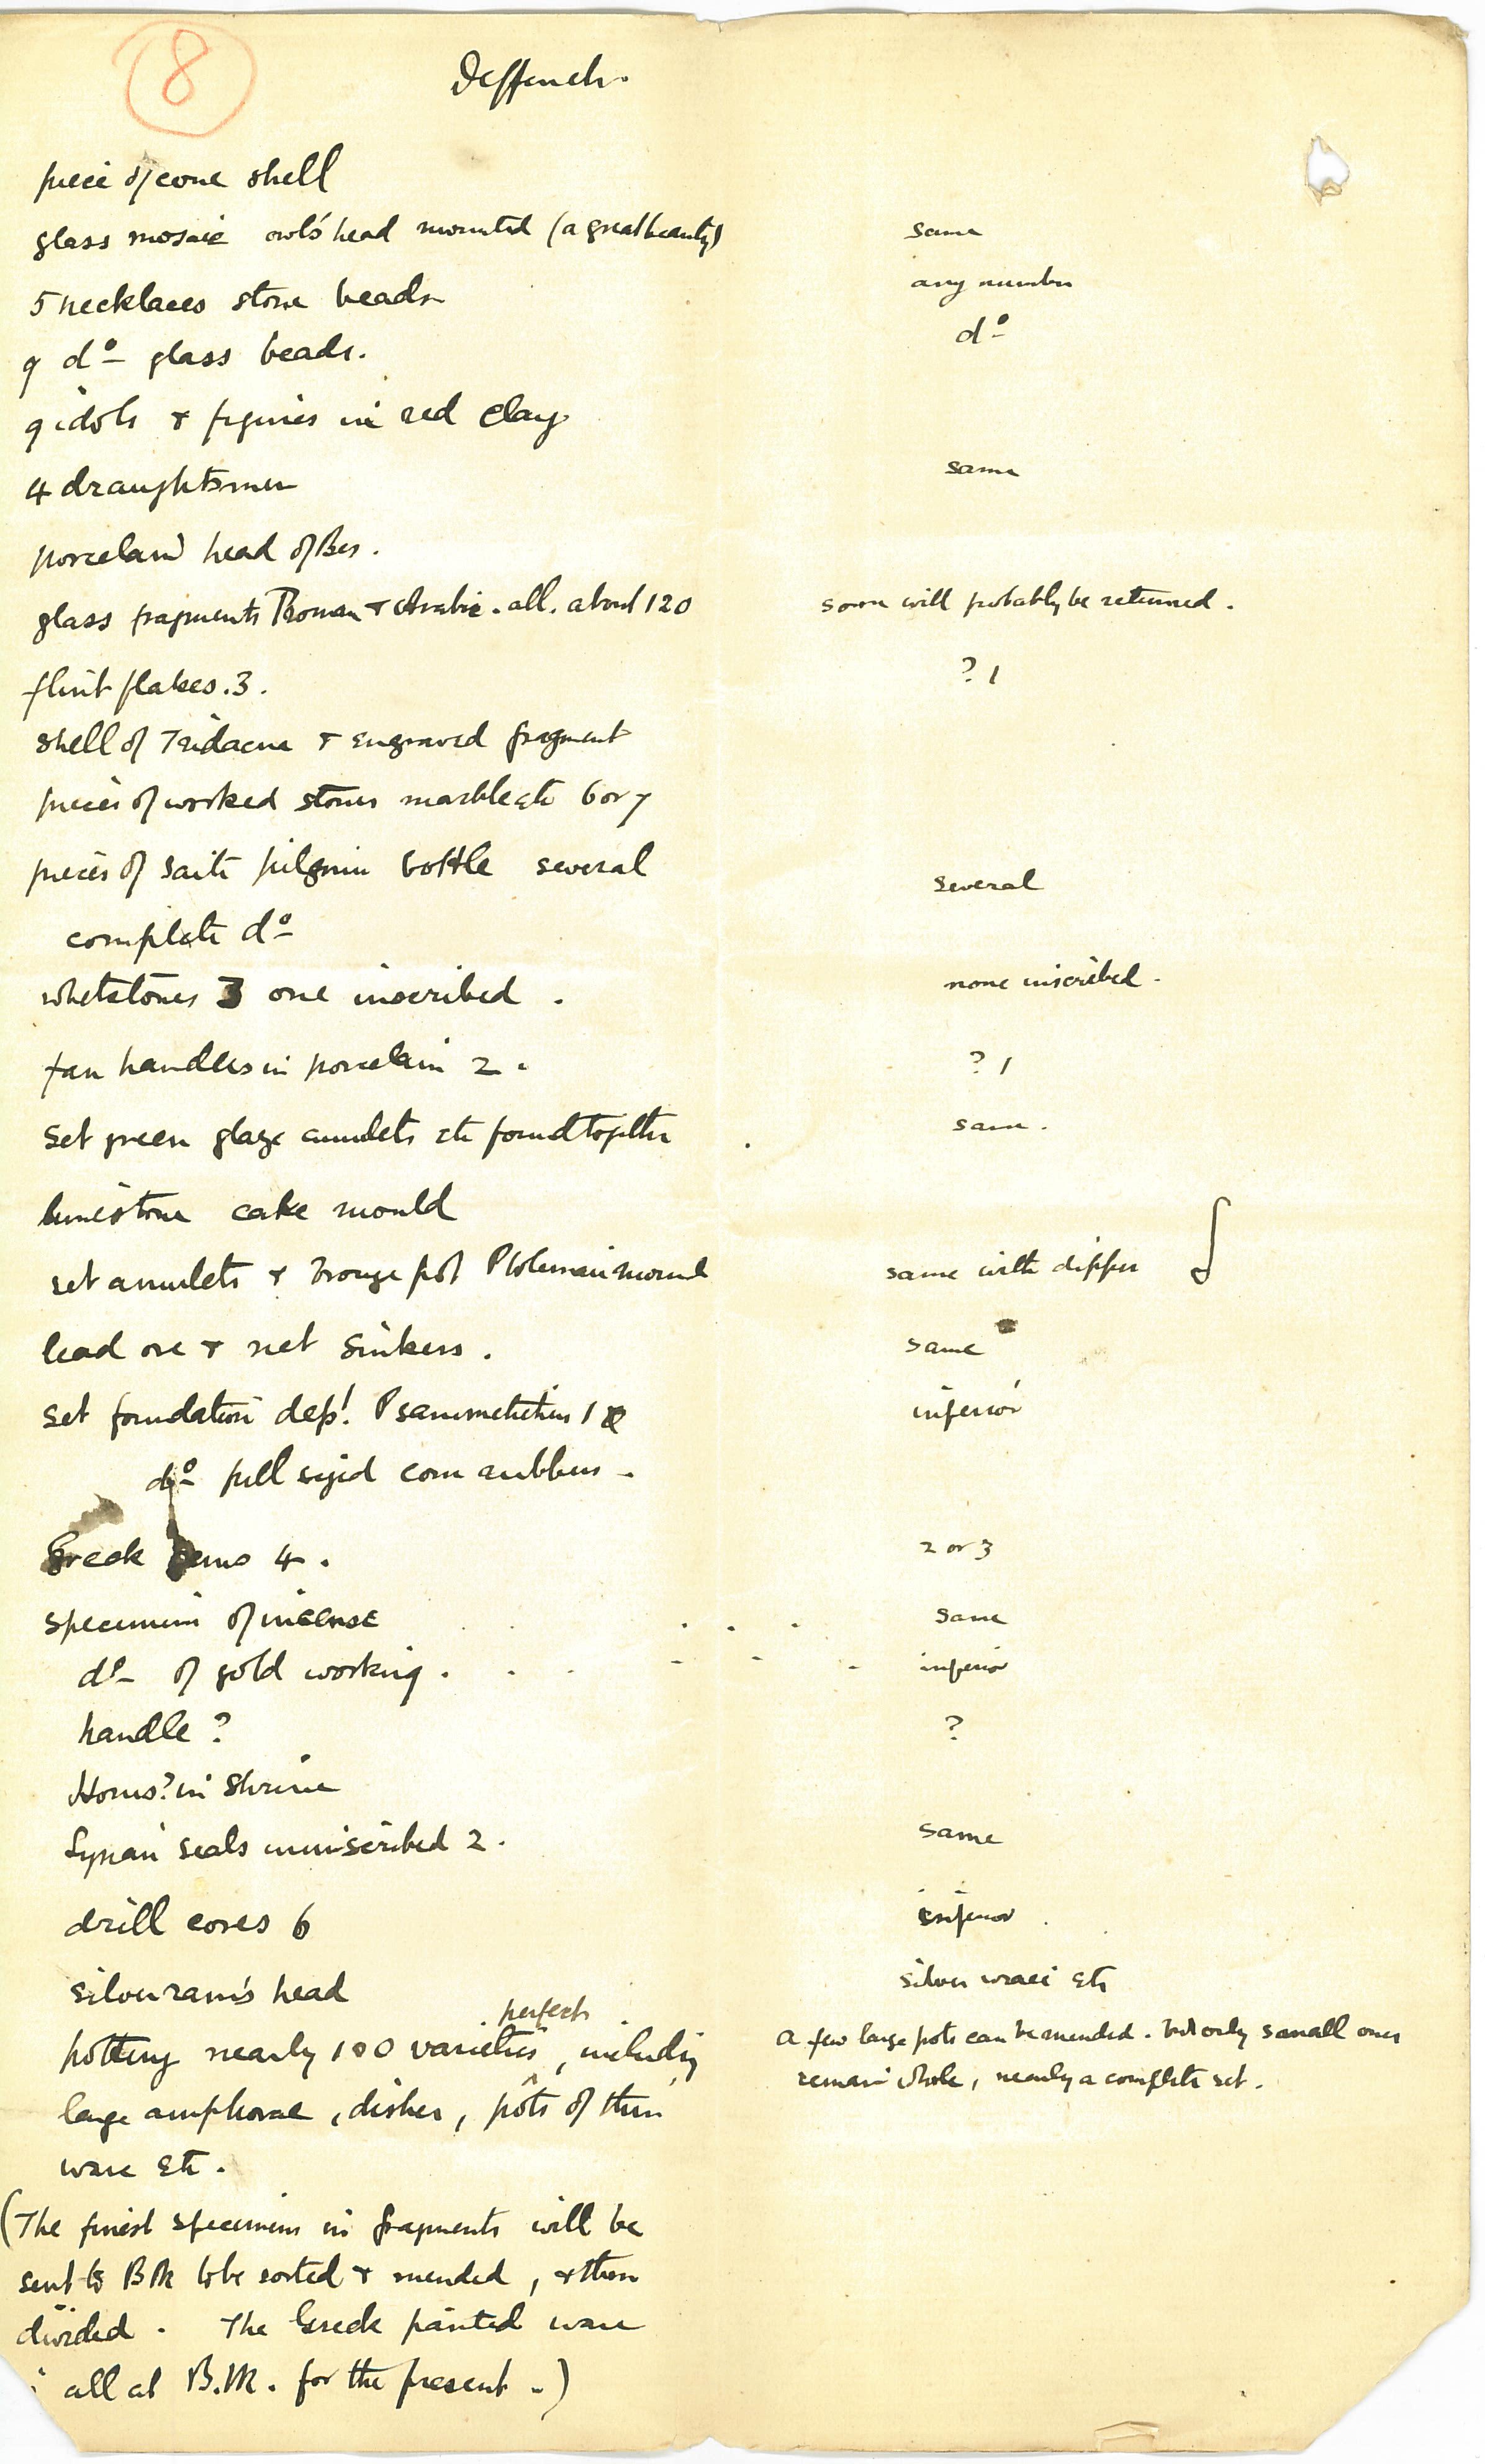 8
Deffeneh.
piece of cone shell
glass mosaic owl's head mounted (a great beauty) same
5 necklaces stone beads any number
9 do glass beads. do
9 idols + figures in red clay
4 draughtsmen same
porcelain head of Bes.
glass fragments Roman + Arabic. all. about 120 some will probably be returned.
flint flakes. 3. ? 1
shell of Tridacna + engraved fragment
pieces of worked stones marble etc 6 or 7
pieces of Saite pilgrim bottle several several
complete do
whetstones 3 one inscribed. none inscribed.
fan handles in porcelain 2. ? 1
set green glaze amulets etc found together same.
limestone cake mould
set amulets + bronze pot Ptolemaic mound same with dipper
lead ore + net sinkers. same
set foundation dept. Psammetichus 1 inferior
do full sized corn rubbers.
Greek gems 4. 2 or 3
specimen of incense same
do of gold working. inferior
handle? ?
Horus? in shrine
Syrian seals uninscribed 2. same
drill cores 6 inferior
silver ram's head silver wire etc
perfect
pottery nearly 100 varieties, including a few large pots can be mended. but only small ones
large amphorae, dishes, pots of thin remain whole, nearly a complete set.
ware etc.
(The finest specimens in fragments will be
sent to BM to be sorted + mended, + then
divided. The Greek painted ware
all at B.M. for the present.)